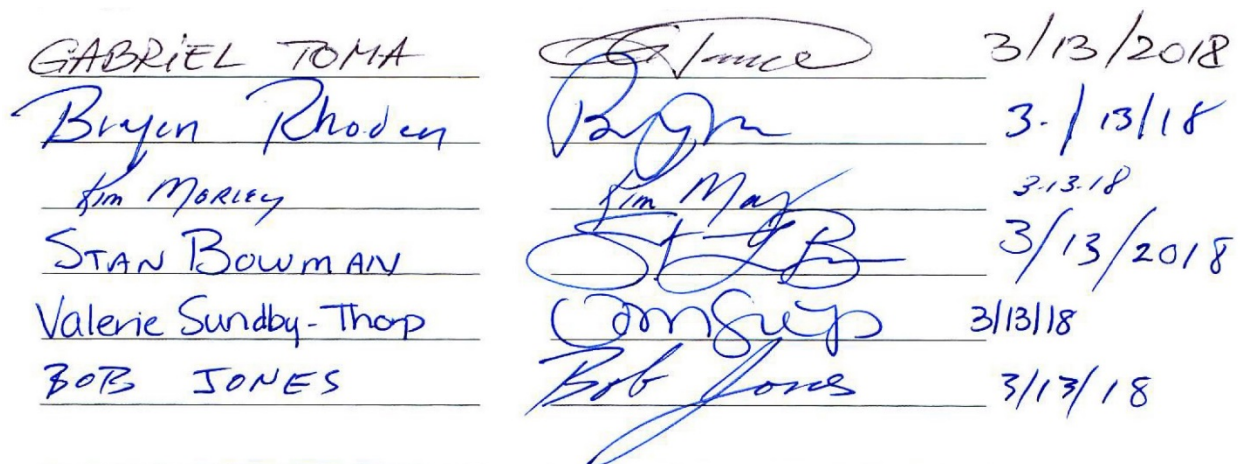 GABRiEL TOMA 3/13/2018
Brycen Rhoden 3-/13/18
Kim MORLEY Kim 3-13-18
STAN BOWMAN 3/13/2018
Valerie Sundby-Thorp 3/13/18
BOB JONES Bob Jones 3/13/18